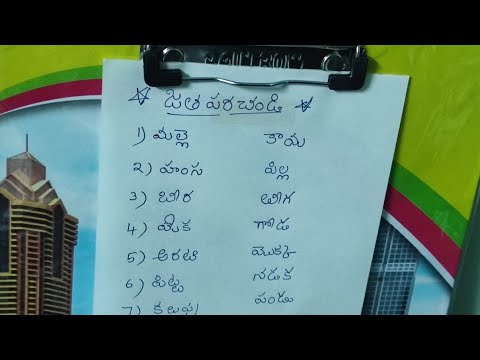 ☆ జత పరచండి ☆
1) మల్లె కాయ
2) హంస పిల్ల
3) బీర తీగ
4) మేక గోడ
5) అరటి మొక్క
6) పిట్ట నడక
7) కలుపు పండు